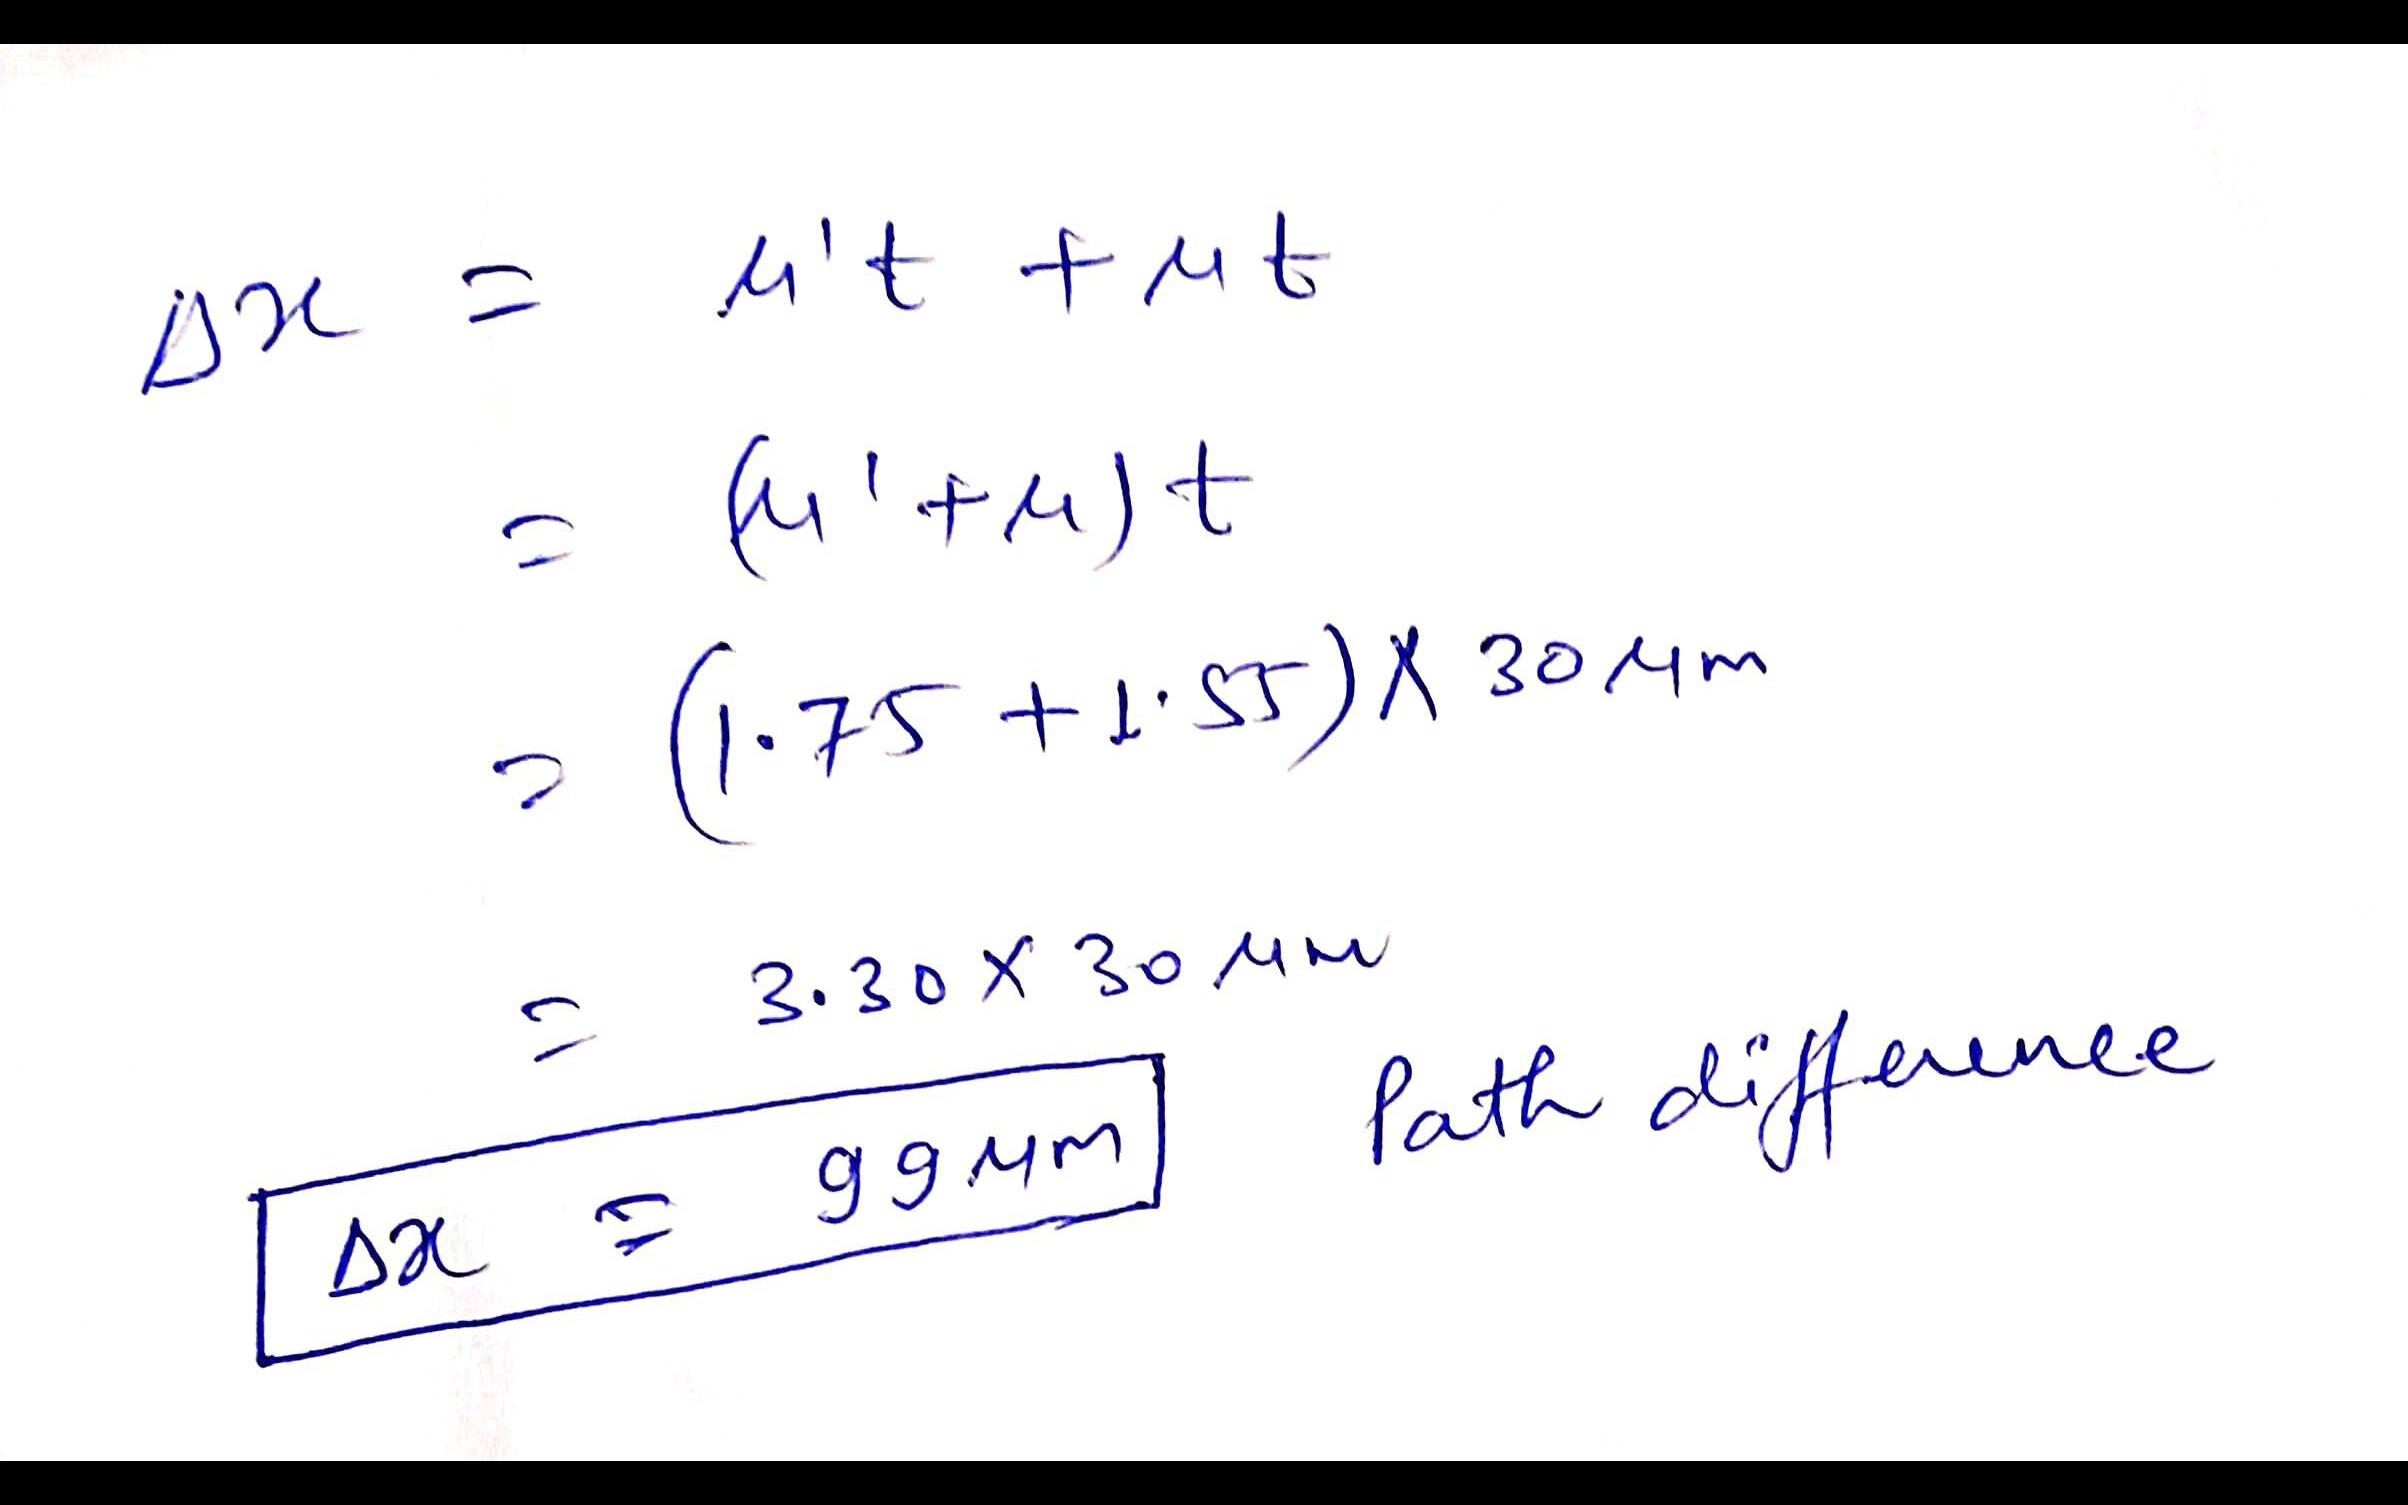 Δx = μ't + μt
= (μ' + μ) t
= (1.75 + 1.55) X 30 μm
= 3.30 X 30 μm
Δx = 99 μm Path difference